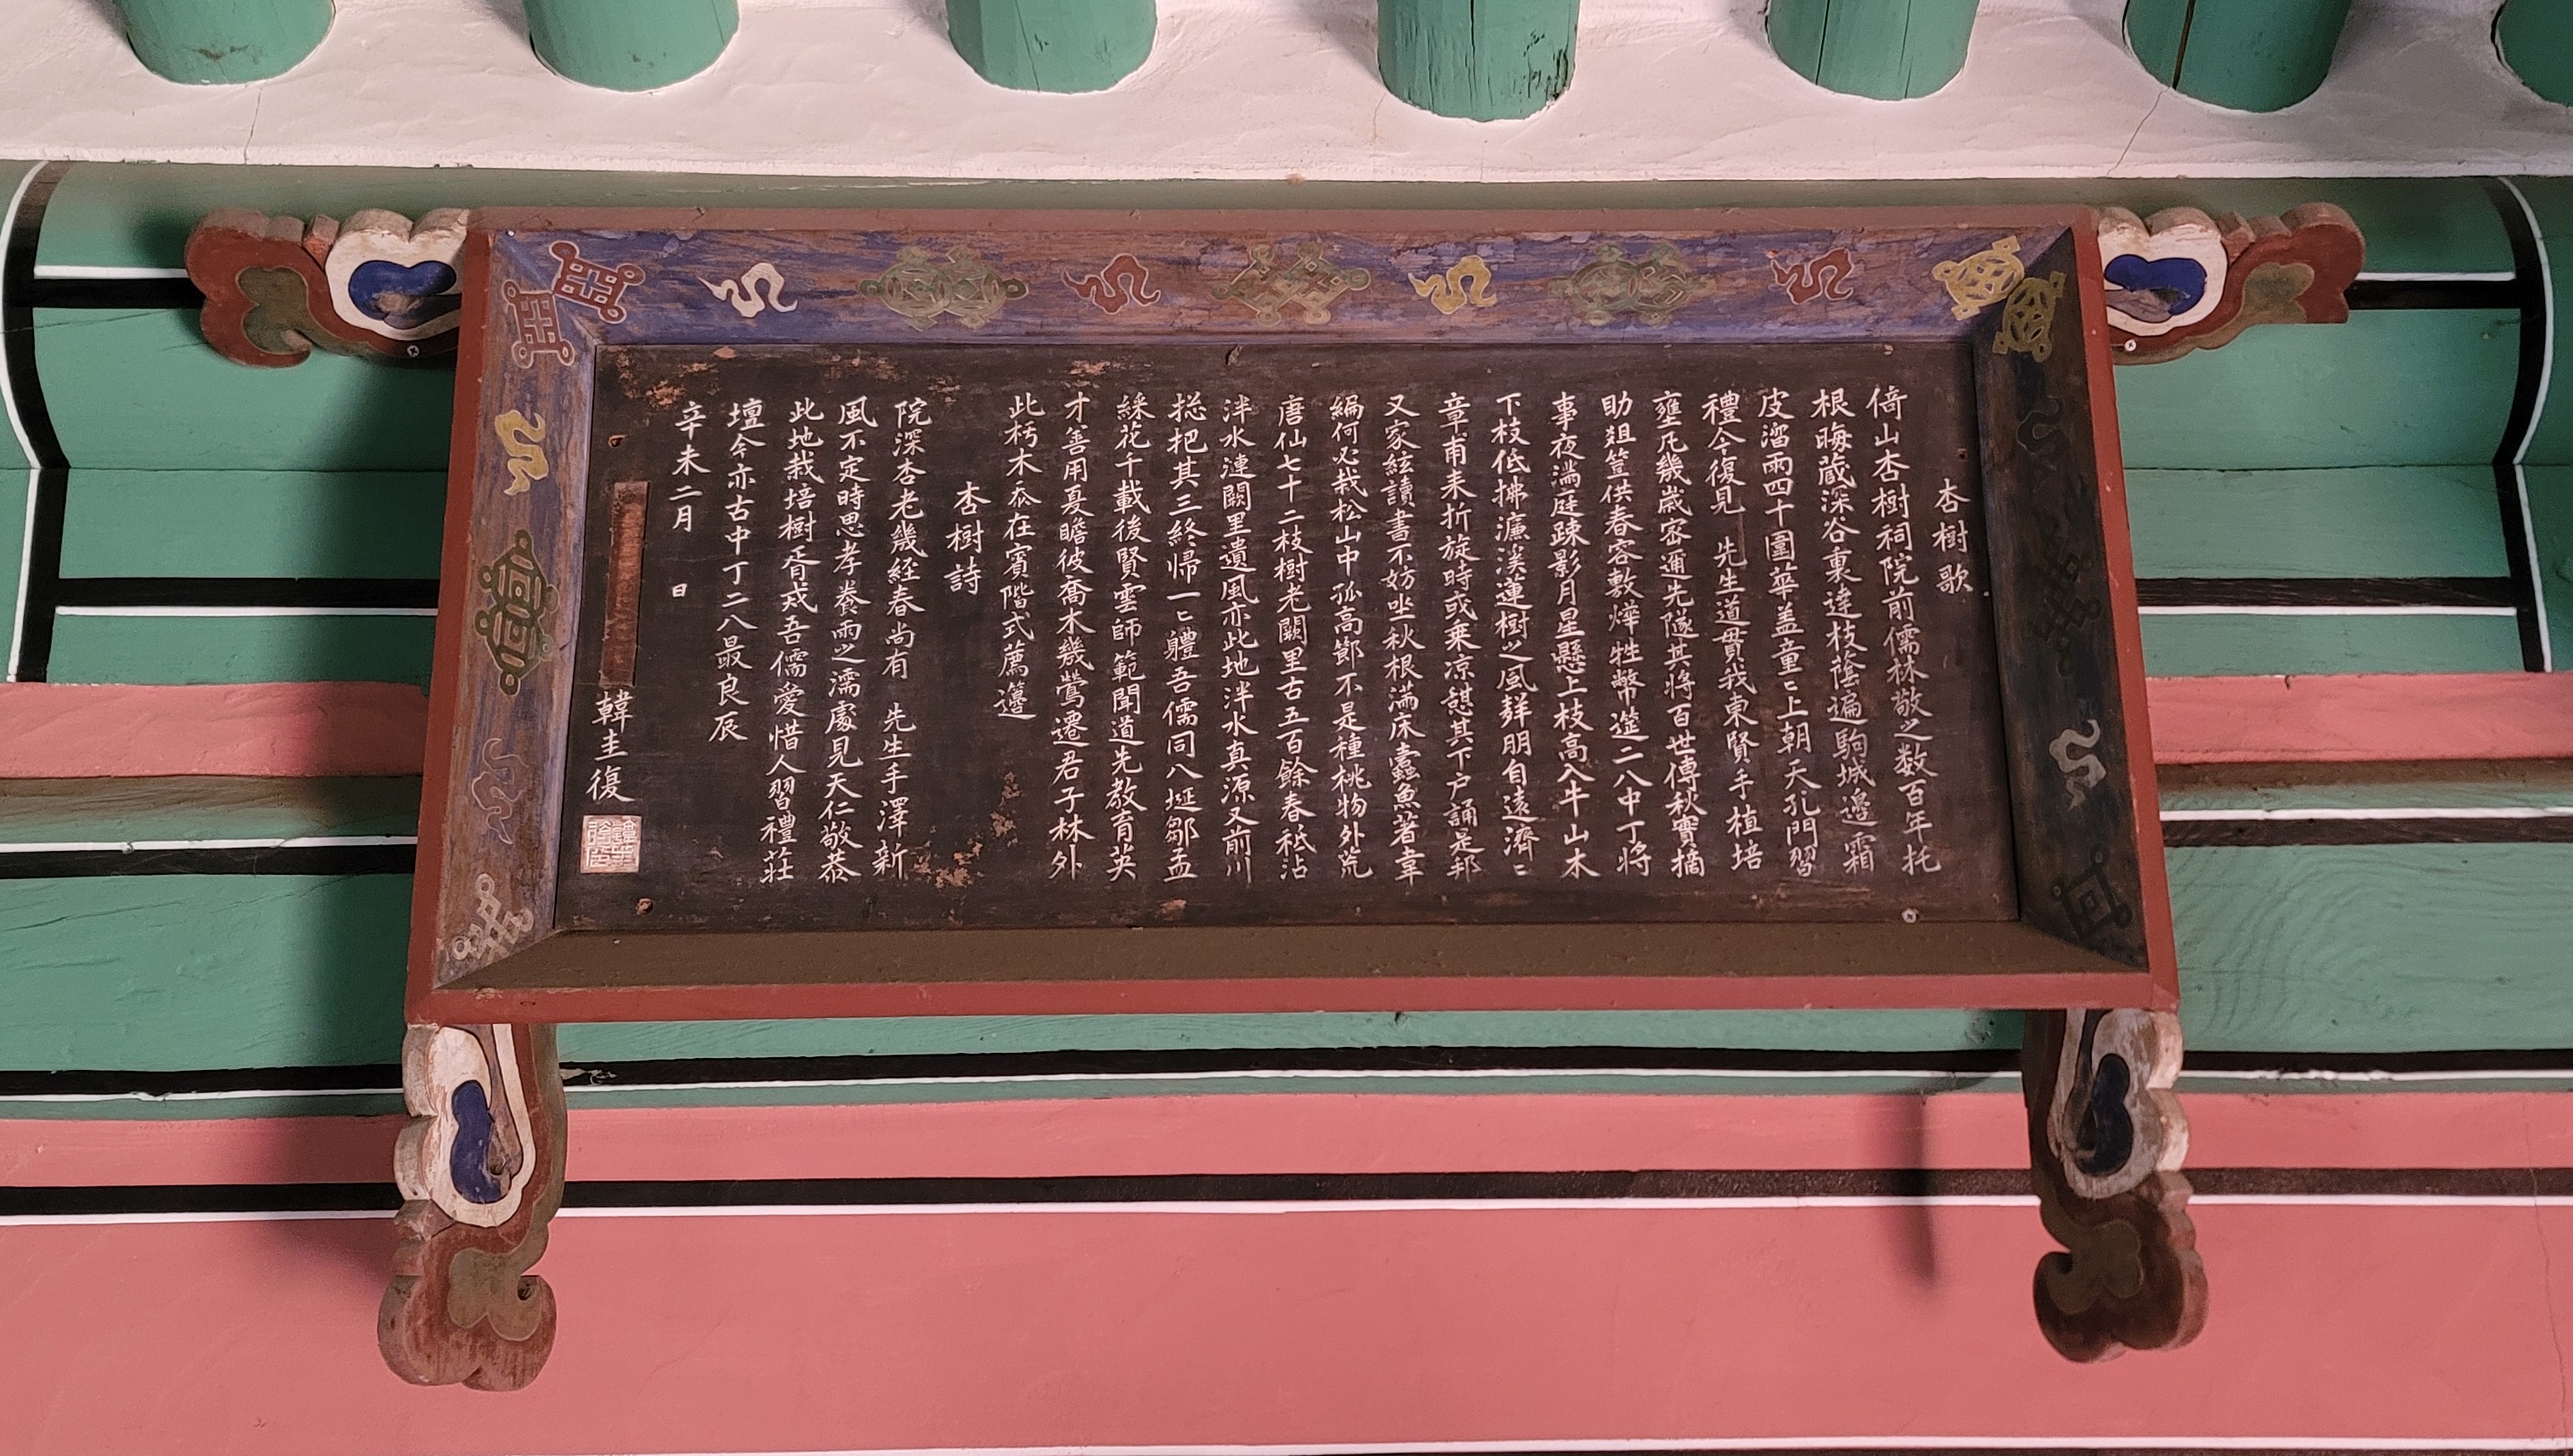 杏樹歌
倚山杏樹祠院前儒林敬之数百年托
根晦蔵深谷裏達枝蔭遍駒城邊霜
皮溜雨四十圍華盖童〻上朝天孔門習
禮今復見 先生道貫我東賢手植培
壅凡幾歲密邇先隧其將百世傳秋實摘
助俎笠供春容敷燁牲幣筵二八中丁將
事夜滿庭踈影月星懸上枝高入牛山木
下枝低拂濂溪蓮樹之風鮮朋自遠濟〻
章甫来折旋時或乗凉憇其下户誦是邦
又家絃讀書不妨坐秋根滿床蠹魚著韋
編何必栽松山中孤高節不是種桃物外荒
唐仙七十二枝樹老闕里古五百餘春秖沾
泮水漣闕里遺風亦此地泮水真源又前川
捴把其三終帰一〻軆吾儒同八埏鄒孟
綵花千載後賢雲師範聞道先教育英
才善用夏瞻彼喬木幾鶯遷君子林外
此朽木夵在賓階式薦籩
杏樹詩
院深杏老幾経春尚有 先生手澤新
風不定時思孝養雨之濡處見天仁敬恭
此地栽培樹胥戒吾儒愛惜人習禮莊
壇今亦古中丁二八最良辰
辛未二月 日
韓圭復